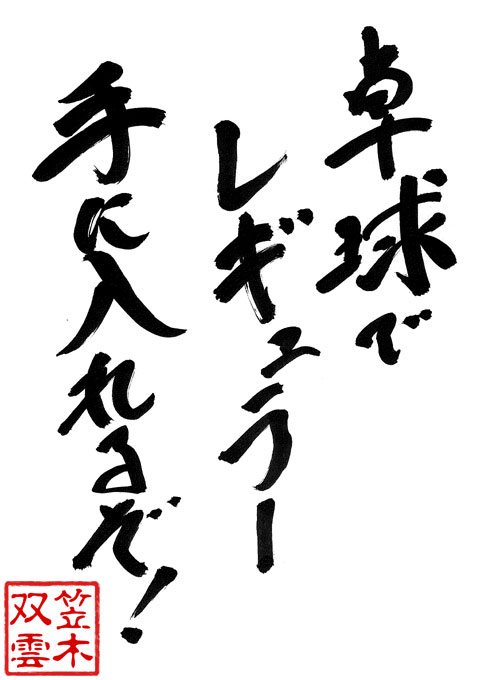 卓球で
レギュラー
手に入れるぞ!
笠木
双雲